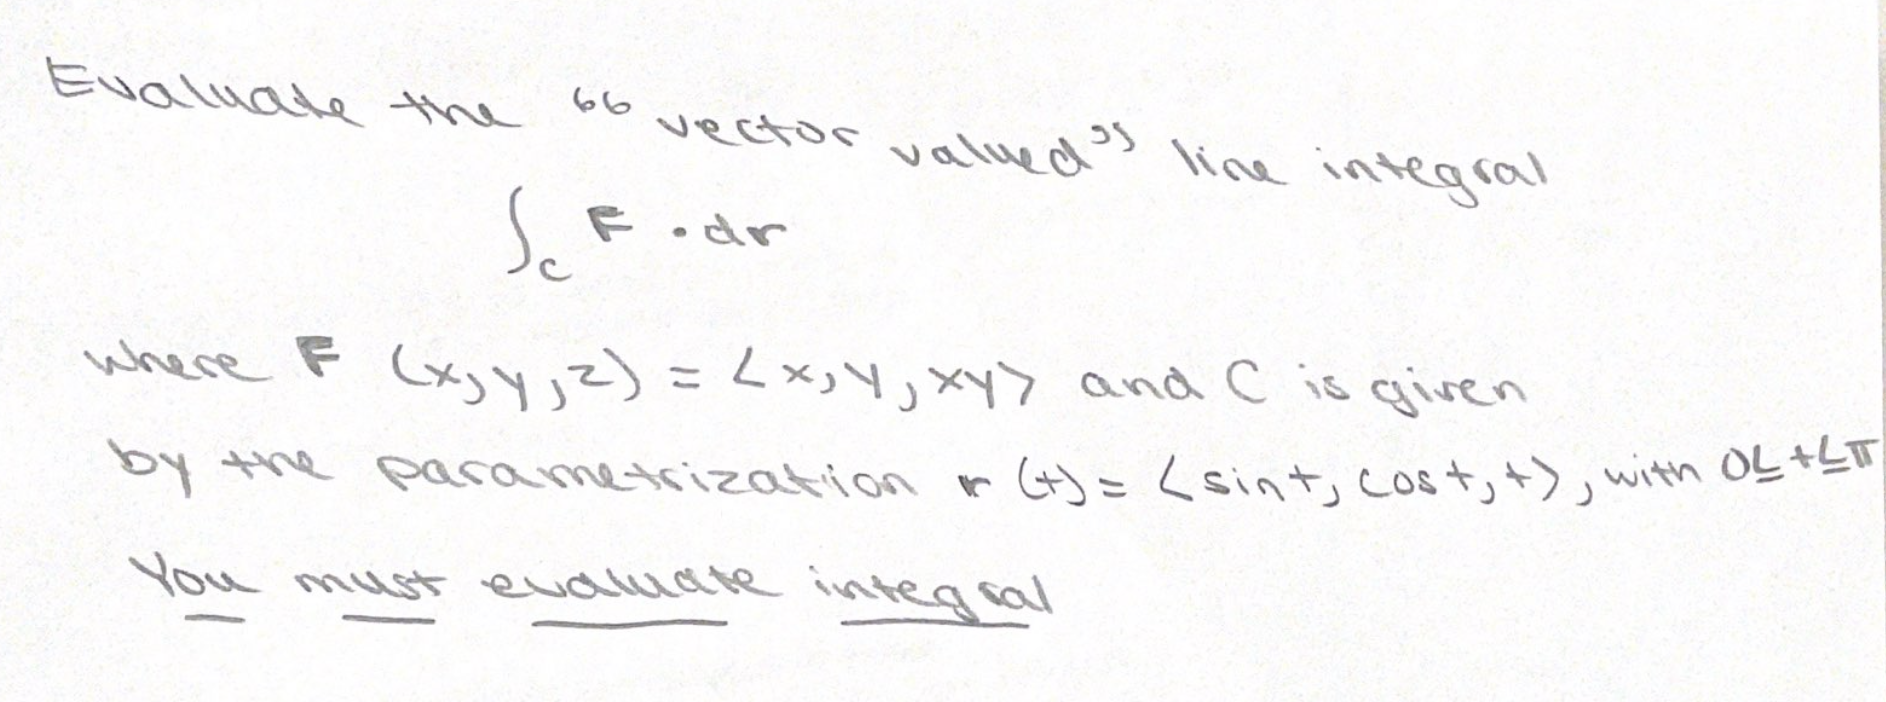 Evaluate the “vector valued” line integral
∫_C F · dr
where F (x, y, z) = <x, y, xy> and C is given
by the parametrization r (t) = <sin t, cos t, t>, with 0 ≤ t ≤ π
You must evaluate integral